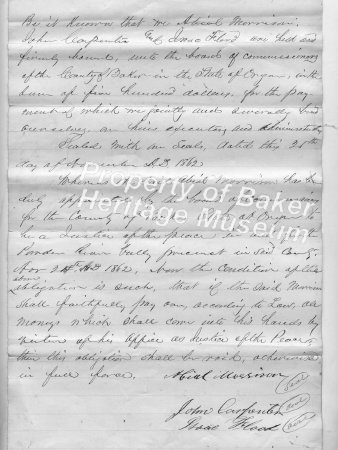 Be it Known that we Abial Morrison,
John Carpenter & Isaac Flood are held and
firmly bound, unto the board of commissioners
of the County of Baker in the State of Oregon, in the
sum of five hundred dollars, for the pay-
ment of which we jointly and severally bind
ourselves, our heirs executors and administrators
Sealed with our Seals, dated this
day of November A.D. 1862
Whereas Morrison has
duly appointed by the board of
for the County of State of Oregon to
be a Justice of the peace in and
Powder River precinct in said County
Nov A.D. 1862, Now the Condition of the
above
obligation is Such, that if the Said Morrison
Shall faithfully pay over, according to Law, all
moneys which Shall come into his hands by
virtue of his office as Justice of the Peace,
then this obligation Shall be void, otherwise
in full force.
Abial Morrison Seal
John Carpenter Seal
Isaac Flood Seal
Property of Baker
Heritage Museum